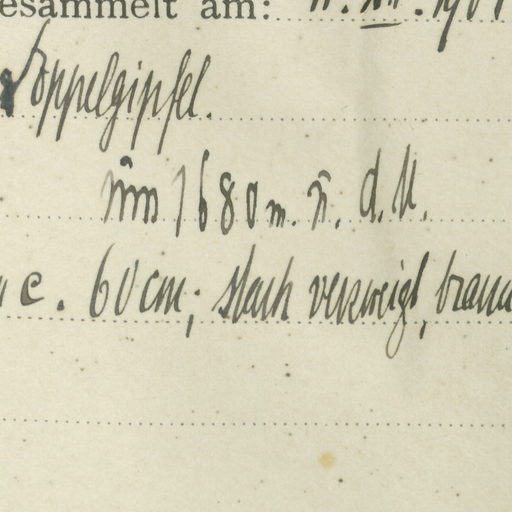 esammelt am: 11. XII. 190
Doppelgipfel.
um 1680 m. ü. d. M.
c. 60 cm; stark verzweigt, braun